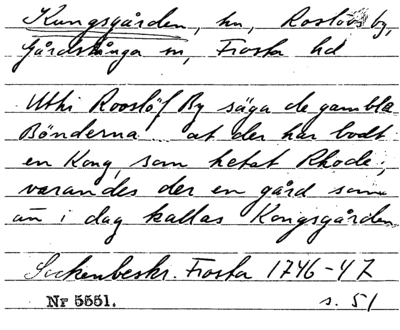 Kungsgården, hn, Roslövs by,
Gårdstånga sn, Frosta hd
Uthi Rooslöf By säga de gambla
Bönderna ... at der har bodt
en Kong, som hetat Rhode;
varandes der en gård som
än i dag kallas Kongsgården
Sockenbeskr. Frosta 1746-47
Nr 5551. s. 51